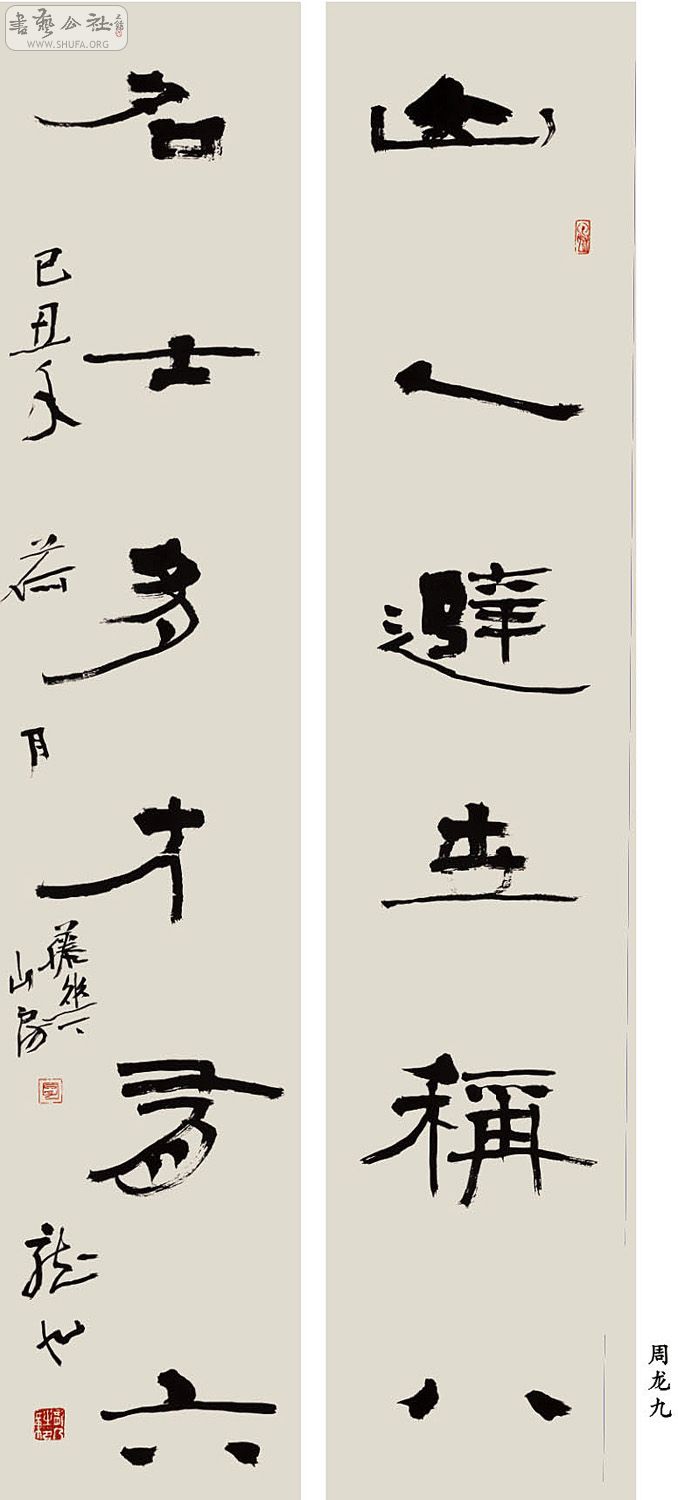 山人避世稱八
名士多才有六
己丑年荷月
山房
龍九
周龙九
書藝公社
WWW.SHUFA.ORG